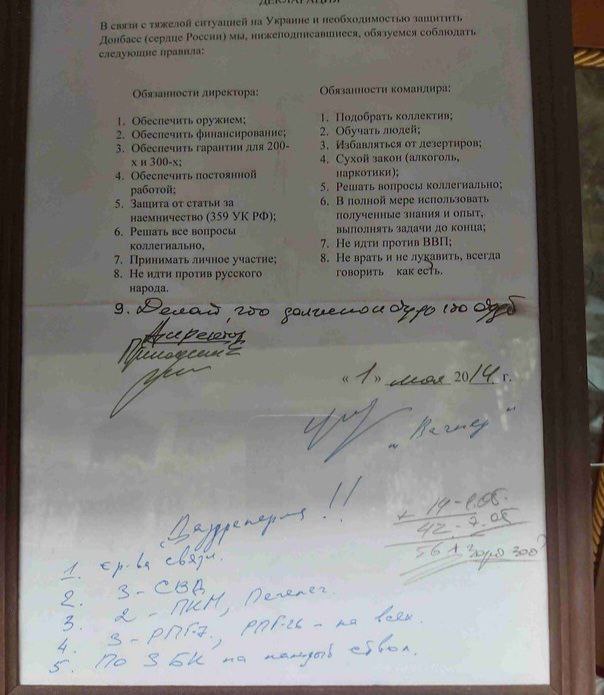 ДЕКЛАРАЦИЯ
В связи с тяжелой ситуацией на Украине и необходимостью защитить
Донбасс (сердце России) мы, нижеподписавшиеся, обязуемся соблюдать
следующие правила:
Обязанности директора:
1. Обеспечить оружием;
2. Обеспечить финансирование;
3. Обеспечить гарантии для 200-
х и 300-х;
4. Обеспечить постоянной
работой;
5. Защита от статьи за
наемничество (359 УК РФ);
6. Решать все вопросы
коллегиально,
7. Принимать личное участие;
8. Не идти против русского
народа.
Обязанности командира:
1. Подобрать коллектив;
2. Обучать людей;
3. Избавляться от дезертиров;
4. Сухой закон (алкоголь,
наркотики);
5. Решать вопросы коллегиально;
6. В полной мере использовать
полученные знания и опыт,
выполнять задачи до конца;
7. Не идти против ВВП;
8. Не врать и не лукавить, всегда
говорить как есть.
9. Делай, что должно и будь что будет
Директор
Пригожин Е
« 1 » мая 2014 г.
"Вагнер"
!!
1. ср-ва связи.
2. 3 - СВД
3. 2 - ПКМ, Печенег.
4. 3 - РПГ-7, РПГ-26 - на всех.
5. По 3 БК на каждый ствол.
+ 14 -
42 -